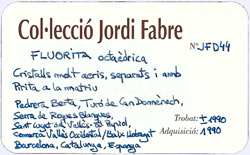 Col·lecció Jordi Fabre
FLUORITA octaèdrica Nº JFD44
Cristalls molt aeris, separats i amb
Pirita a la matriu
Pedrera Berta, Turó de Can Domènech,
Serra de Roques Blanques,
Sant Cugat del Vallès - El Papiol, Trobat: ± 1990
Comarca Vallès Occidental / Baix Llobregat Adquisició: 1990
Barcelona, Catalunya, Espanya